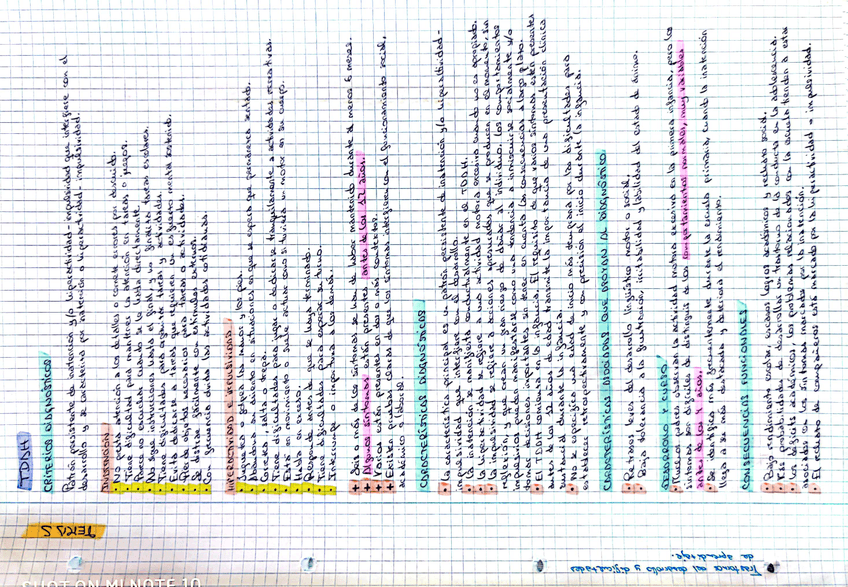 Trastornos del desarrollo y dificultades
de aprendizaje.
TEMA 2
TDAH
CRITERIOS DIAGNÓSTICOS
Patrón persistente de inatención y/o hiperactividad-impulsividad que interfiere con el
desarrollo y se caracteriza por inatención o hiperactividad-impulsividad.
INATENCIÓN
No presta atención a los detalles o comete errores por descuido.
Tiene dificultad para mantener la atención en tareas o juegos.
Parece no escuchar cuando se le habla directamente.
No sigue instrucciones hasta el final y no finaliza tareas escolares.
Tiene dificultades para organizar tareas y actividades.
Evita dedicarse a tareas que requieren un esfuerzo mental sostenido.
Pierde objetos necesarios para tareas o actividades.
Se distrae fácilmente por estímulos externos.
Con frecuencia olvida las actividades cotidianas.
HIPERACTIVIDAD E IMPULSIVIDAD
Juguetea o golpea las manos y los pies.
Se levanta en situaciones en que se espera que permanezca sentado.
Corretea, salta o trepa.
Tiene dificultades para jugar o dedicarse tranquilamente a actividades recreativas.
Está en movimiento o suele actuar como si tuviera un motor en su cuerpo.
Habla en exceso.
Responde antes de que se haya terminado.
Tiene dificultades para esperar su turno.
Interrumpe o importuna a los demás.
+ Seis o más de los síntomas se han de haber mantenido durante al menos 6 meses.
+ Algunos síntomas están presentes antes de los 12 años.
+ Varios están presentes en dos o más contextos.
+ Existen pruebas claras de que los síntomas interfieren con el funcionamiento social,
académico o laboral.
CARACTERÍSTICAS DIAGNÓSTICAS
La característica principal es un patrón persistente de inatención y/o hiperactividad-
impulsividad que interfiere con el desarrollo.
La inatención se manifiesta conductualmente en el TDAH.
La hiperactividad se refiere a una actividad motora excesiva cuando no es apropiado.
La impulsividad se refiere a acciones apresuradas que se producen en el momento, sin
reflexión, y que crean un gran riesgo de dañar al individuo. Los comportamientos
impulsivos pueden manifestarse como una tendencia a inmiscuirse socialmente y/o
tomar decisiones importantes sin tener en cuenta las consecuencias a largo plazo.
El TDAH comienza en la infancia. El requisito de que varios síntomas estén presentes
antes de los 12 años de edad transmite la importancia de una presentación clínica
sustancial durante la infancia.
No se especifica una edad de inicio más temprana por las dificultades para
establecer retrospectivamente y con precisión el inicio durante la infancia.
CARACTERÍSTICAS ASOCIADAS QUE APOYAN AL DIAGNÓSTICO
Retrasos leves del desarrollo lingüístico, motor o social.
Baja tolerancia a la frustración, irritabilidad y labilidad del estado de ánimo.
DESARROLLO Y CURSO
Muchos padres observan la actividad motora excesiva en la primera infancia, pero los
síntomas son difíciles de distinguir de los comportamientos normales, muy variables
antes de los 4 años.
Se identifica más frecuentemente durante la escuela primaria, cuando la inatención
llega a ser más destacada y deteriora el rendimiento.
CONSECUENCIAS FUNCIONALES
Bajo rendimiento escolar, escasos logros académicos y rechazo social.
Más probabilidades de desarrollar un trastorno de la conducta en la adolescencia.
Los déficits académicos y los problemas relacionados con la escuela tienden a estar
asociados con los síntomas marcados por la inatención.
El rechazo de compañeros está marcado por la hiperactividad-impulsividad.
SHOT ON MI NOTE 10